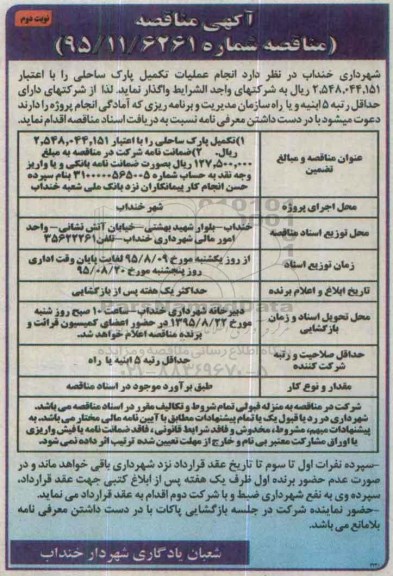 نوبت دوم
آگهی مناقصه
(مناقصه شماره ۹۵/۱۱/۶۲۶۱)
شهرداری خنداب در نظر دارد انجام عملیات تکمیل پارک ساحلی را با اعتبار
۲,۵۴۸,۰۴۴,۱۵۱ ریال به شرکتهای واجد الشرایط واگذار نماید. لذا از شرکتهای دارای
حداقل رتبه ۵ ابنیه و یا راه سازمان مدیریت و برنامه ریزی که آمادگی انجام پروژه را دارند
دعوت میشود با در دست داشتن معرفی نامه نسبت به دریافت اسناد مناقصه اقدام نماید.
عنوان مناقصه و مبالغ تضمین
۱)تکمیل پارک ساحلی را با اعتبار ۲,۵۴۸,۰۴۴,۱۵۱
ریال. ۲)ضمانت نامه شرکت در مناقصه به مبلغ
۱۲۷,۵۰۰,۰۰۰ ریال بصورت ضمانت نامه بانکی و یا واریز
وجه نقد به حساب شماره ۳۱۰۰۰۰۰۵۶۵۰۰۵ بنام سپرده
حسن انجام کار پیمانکاران نزد بانک ملی شعبه خنداب
محل اجرای پروژه
شهر خنداب
محل توزیع اسناد مناقصه
خنداب-بلوار شهید بهشتی-خیابان آتش نشانی- واحد
امور مالی شهرداری خنداب-تلفن ۳۵۶۲۲۲۶۱
زمان توزیع اسناد
از روز یکشنبه مورخ ۹۵/۸/۰۹ لغایت پایان وقت اداری
روز پنجشنبه مورخ ۹۵/۰۸/۲۰
تاریخ ابلاغ و اعلام برنده
حداکثر یک هفته پس از بازگشایی
محل تحویل اسناد و زمان بازگشایی
دبیرخانه شهرداری خنداب - ساعت ۱۰ صبح روز شنبه
مورخ ۱۳۹۵/۸/۲۲ در حضور اعضای کمیسیون قرائت و
برنده مناقصه اعلام خواهد شد.
حداقل صلاحیت و رتبه شرکت کننده
حداقل رتبه ۵ ابنیه یا راه
مقدار و نوع کار
طبق برآورد موجود در اسناد مناقصه
شرکت در مناقصه به منزله قبولی تمام شروط و تکالیف مقرر در اسناد مناقصه می باشد.
شهرداری در رد یا قبول یک یا تمام پیشنهادات مطابق با آیین نامه مالی مختار می باشد. به
پیشنهادات مبهم، مشروط، مخدوش و فاقد شرایط قانونی، فاقد ضمانت نامه یا فیش واریزی
یا اوراق مشارکت معتبر بی نام و خارج از مهلت تعیین شده ترتیب اثر داده نمی شود.
-سپرده نفرات اول تا سوم تا تاریخ عقد قرارداد نزد شهرداری باقی خواهد ماند و در
صورت عدم حضور برنده اول ظرف یک هفته پس از ابلاغ کتبی جهت عقد قرارداد،
سپرده وی به نفع شهرداری ضبط و با شرکت دوم اقدام به عقد قرارداد می نماید.
-حضور نماینده شرکت در جلسه بازگشایی پاکات با در دست داشتن معرفی نامه
بلامانع می باشد.
شعبان یادگاری شهردار خنداب